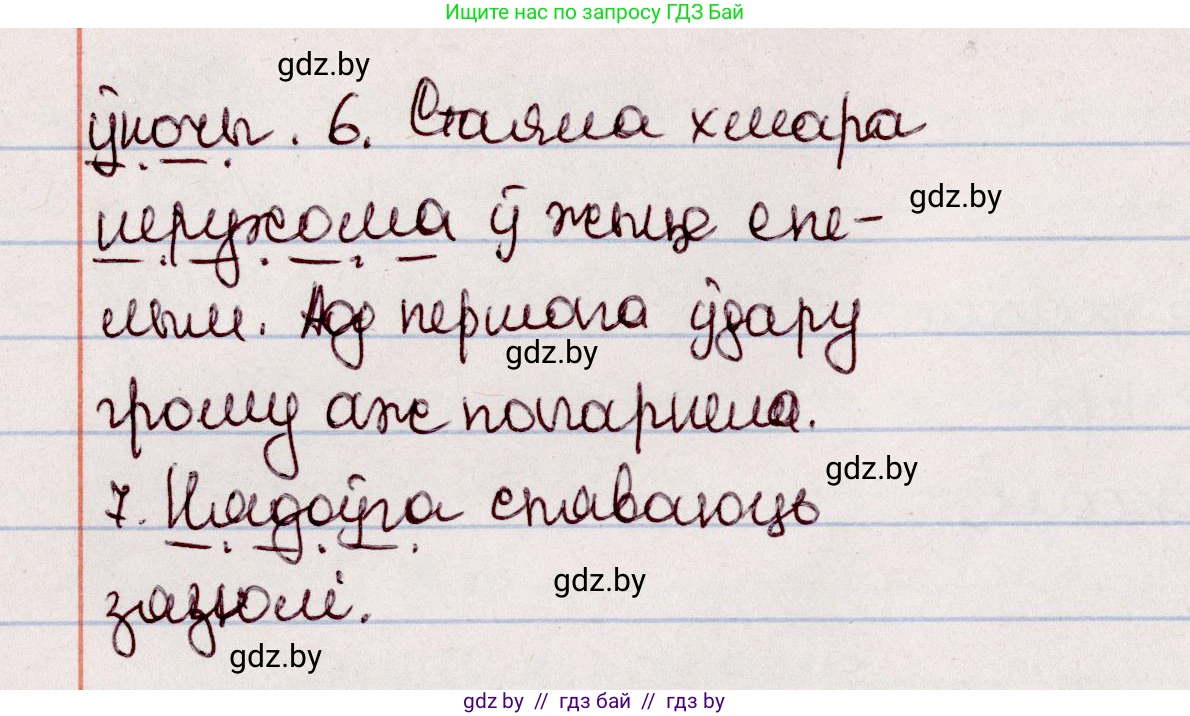 Ищите нас по запросу ГДЗ Бай
gdz.by
ўночы. 6. Стаяла хмара
нерухома ў жыце спе-
gdz.by
лым. Ад першага ўдару
gdz.by
грому аж пагарнела.
gdz.by
7. Нядоўга спяваюць
gdz.by
зязюлі.
gdz.by
gdz by // гдз бай // гдз by